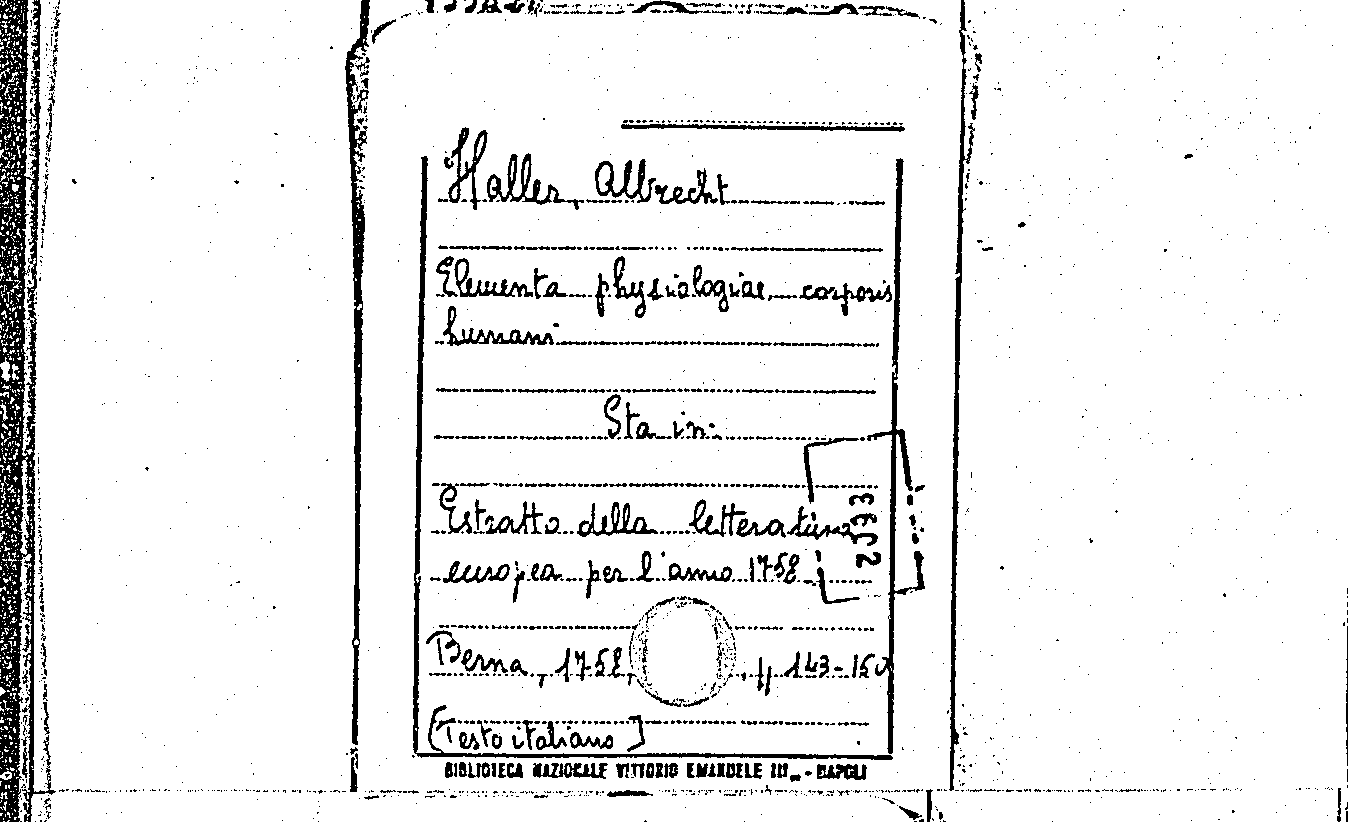 Haller, Albrecht
Elementa physiologiae corporis
humani
Sta in:
Estratto della letteratura
europea per l'anno 1758
2533
Berna, 1758, , pp 143-150
[Testo italiano]
BIBLIOTECA NAZIONALE VITTORIO EMANUELE III - NAPOLI